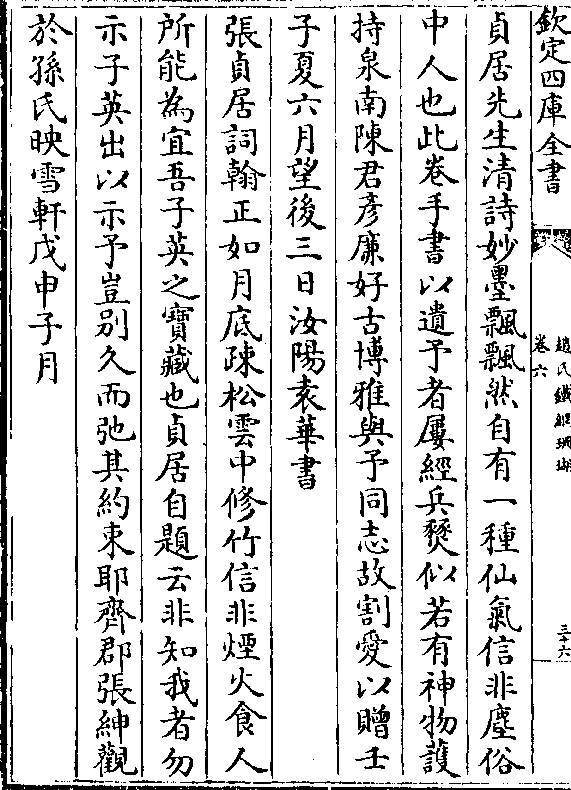 欽定四庫全書
趙氏鐵網珊瑚
卷六
三十六
貞居先生清詩妙墨飄飄然自有一種仙氣信非塵俗
中人也此卷手書以遺予者屢經兵燹似若有神物護
持泉南陳君彥廉好古博雅與予同志故割愛以贈壬
子夏六月望後三日汝陽袁華書
張貞居詞翰正如月底疎松雲中修竹信非煙火食人
所能為宜吾子英之寶藏也貞居自題云非知我者勿
示子英出以示予豈別久而弛其約束耶齊郡張紳觀
於孫氏映雪軒戊申子月